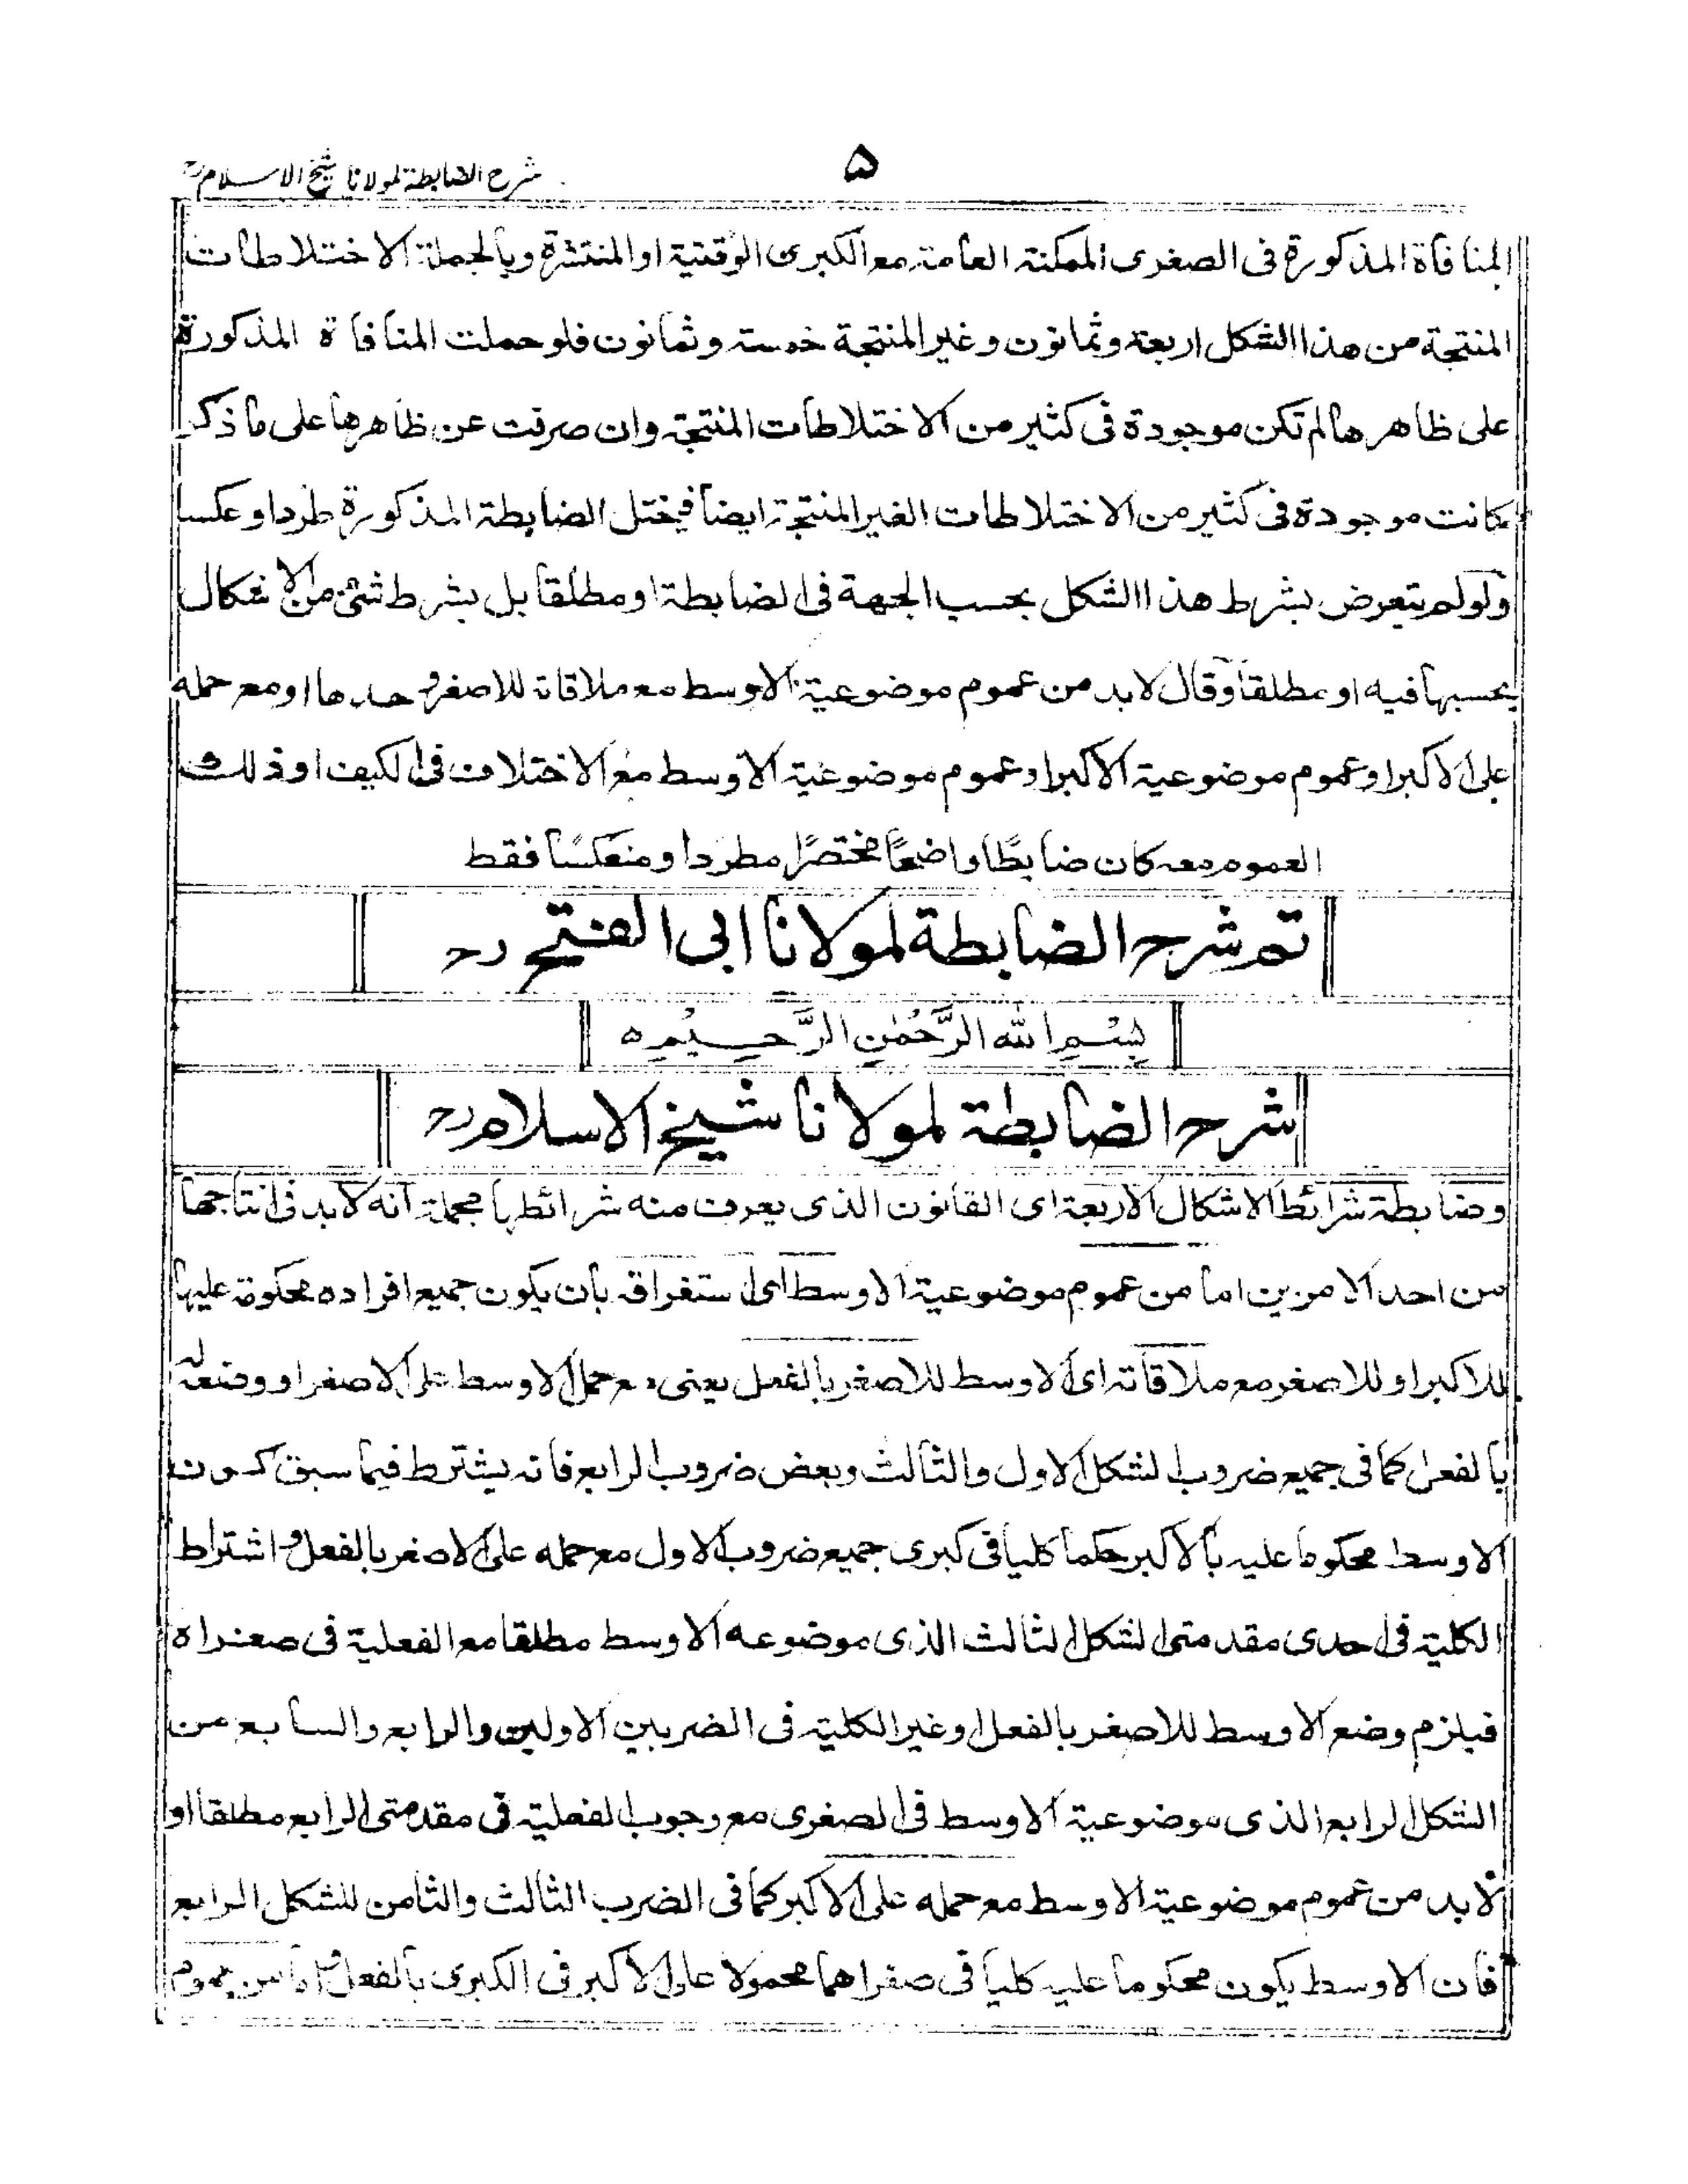 ۵
شرح الضابطة لمولانا شيخ الاسلام رح
المنافاة المذكورة فى الصغرى الممكنة العامة مع الكبرى الوقتية او المنتشرة وبالجملة الاختلاطات
المنتجة من هذا الشكل اربعة وثمانون وغير المنتجة خمسة وثمانون فلو حملت المنافاة المذكورة
على ظاهرها لم تكن موجودة فى كثير من الاختلاطات المنتجة وان صرفت عن ظاهرها على ما ذكر
كانت موجودة فى كثير من الاختلاطات الغير المنتجة ايضا فيختل الضابطة المذكورة طردا وعكسا
ولو لم يتعرض بشرط هذا الشكل بحسب الجهة فى الضابطة او مطلقا بل بشرط شئ من الاشكال
بحسبها فيه او مطلقا وقال لا بد من عموم موضوعية الاوسط مع ملاقاته للاصغر وحدها او مع حمله
على الاكبر او عموم موضوعية الاكبر او عموم موضوعية الاوسط مع الاختلاف فى الكيف او ذلك
العموم معه كان ضابطًا واضحًا مختصرًا مطردا ومنعكسًا فقط
تم شرح الضابطة لمولانا ابى الفتح رح
بِسْمِ اللهِ الرَّحْمٰنِ الرَّحِيْمِ ه
شرح الضابطة لمولانا شيخ الاسلام رح
وضابطة شرائط الاشكال الاربعة اى القانون الذى يعرف منه شرائطها مجملة انه لا بد فى انتاجها
من احد الامرين اما من عموم موضوعية الاوسط اى استغراقه بان يكون جميع افراده محكومة عليها
للاكبر او للاصغر مع ملاقاته اى الاوسط للاصغر بالفعل يعنى مع حمل الاوسط على الاصغر او وضعه له
بالفعل كما فى جميع ضروب الشكل الاول والثالث وبعض ضروب الرابع فانه يشترط فيما سبق كون
الاوسط محكوما عليه بالاكبر حكما كليا فى كبرى جميع ضروب الاول مع حمله على الاصغر بالفعل واشتراط
الكلية فى احدى مقدمتى الشكل الثالث الذى موضوعه الاوسط مطلقا مع الفعلية فى صغراه
فيلزم وضع الاوسط للاصغر بالفعل او غير الكلية فى الضربين الاولين والرابع والسابع من
الشكل الرابع الذى موضوعية الاوسط فى الصغرى مع وجوب الفعلية فى مقدمتى الرابع مطلقا او
لا بد من عموم موضوعية الاوسط مع حمله على الاكبر كما فى الضرب الثالث والثامن للشكل الرابع
فان الاوسط يكون محكوما عليه كليا فى صغراهما محمولا على الاكبر فى الكبرى بالفعل من عموم